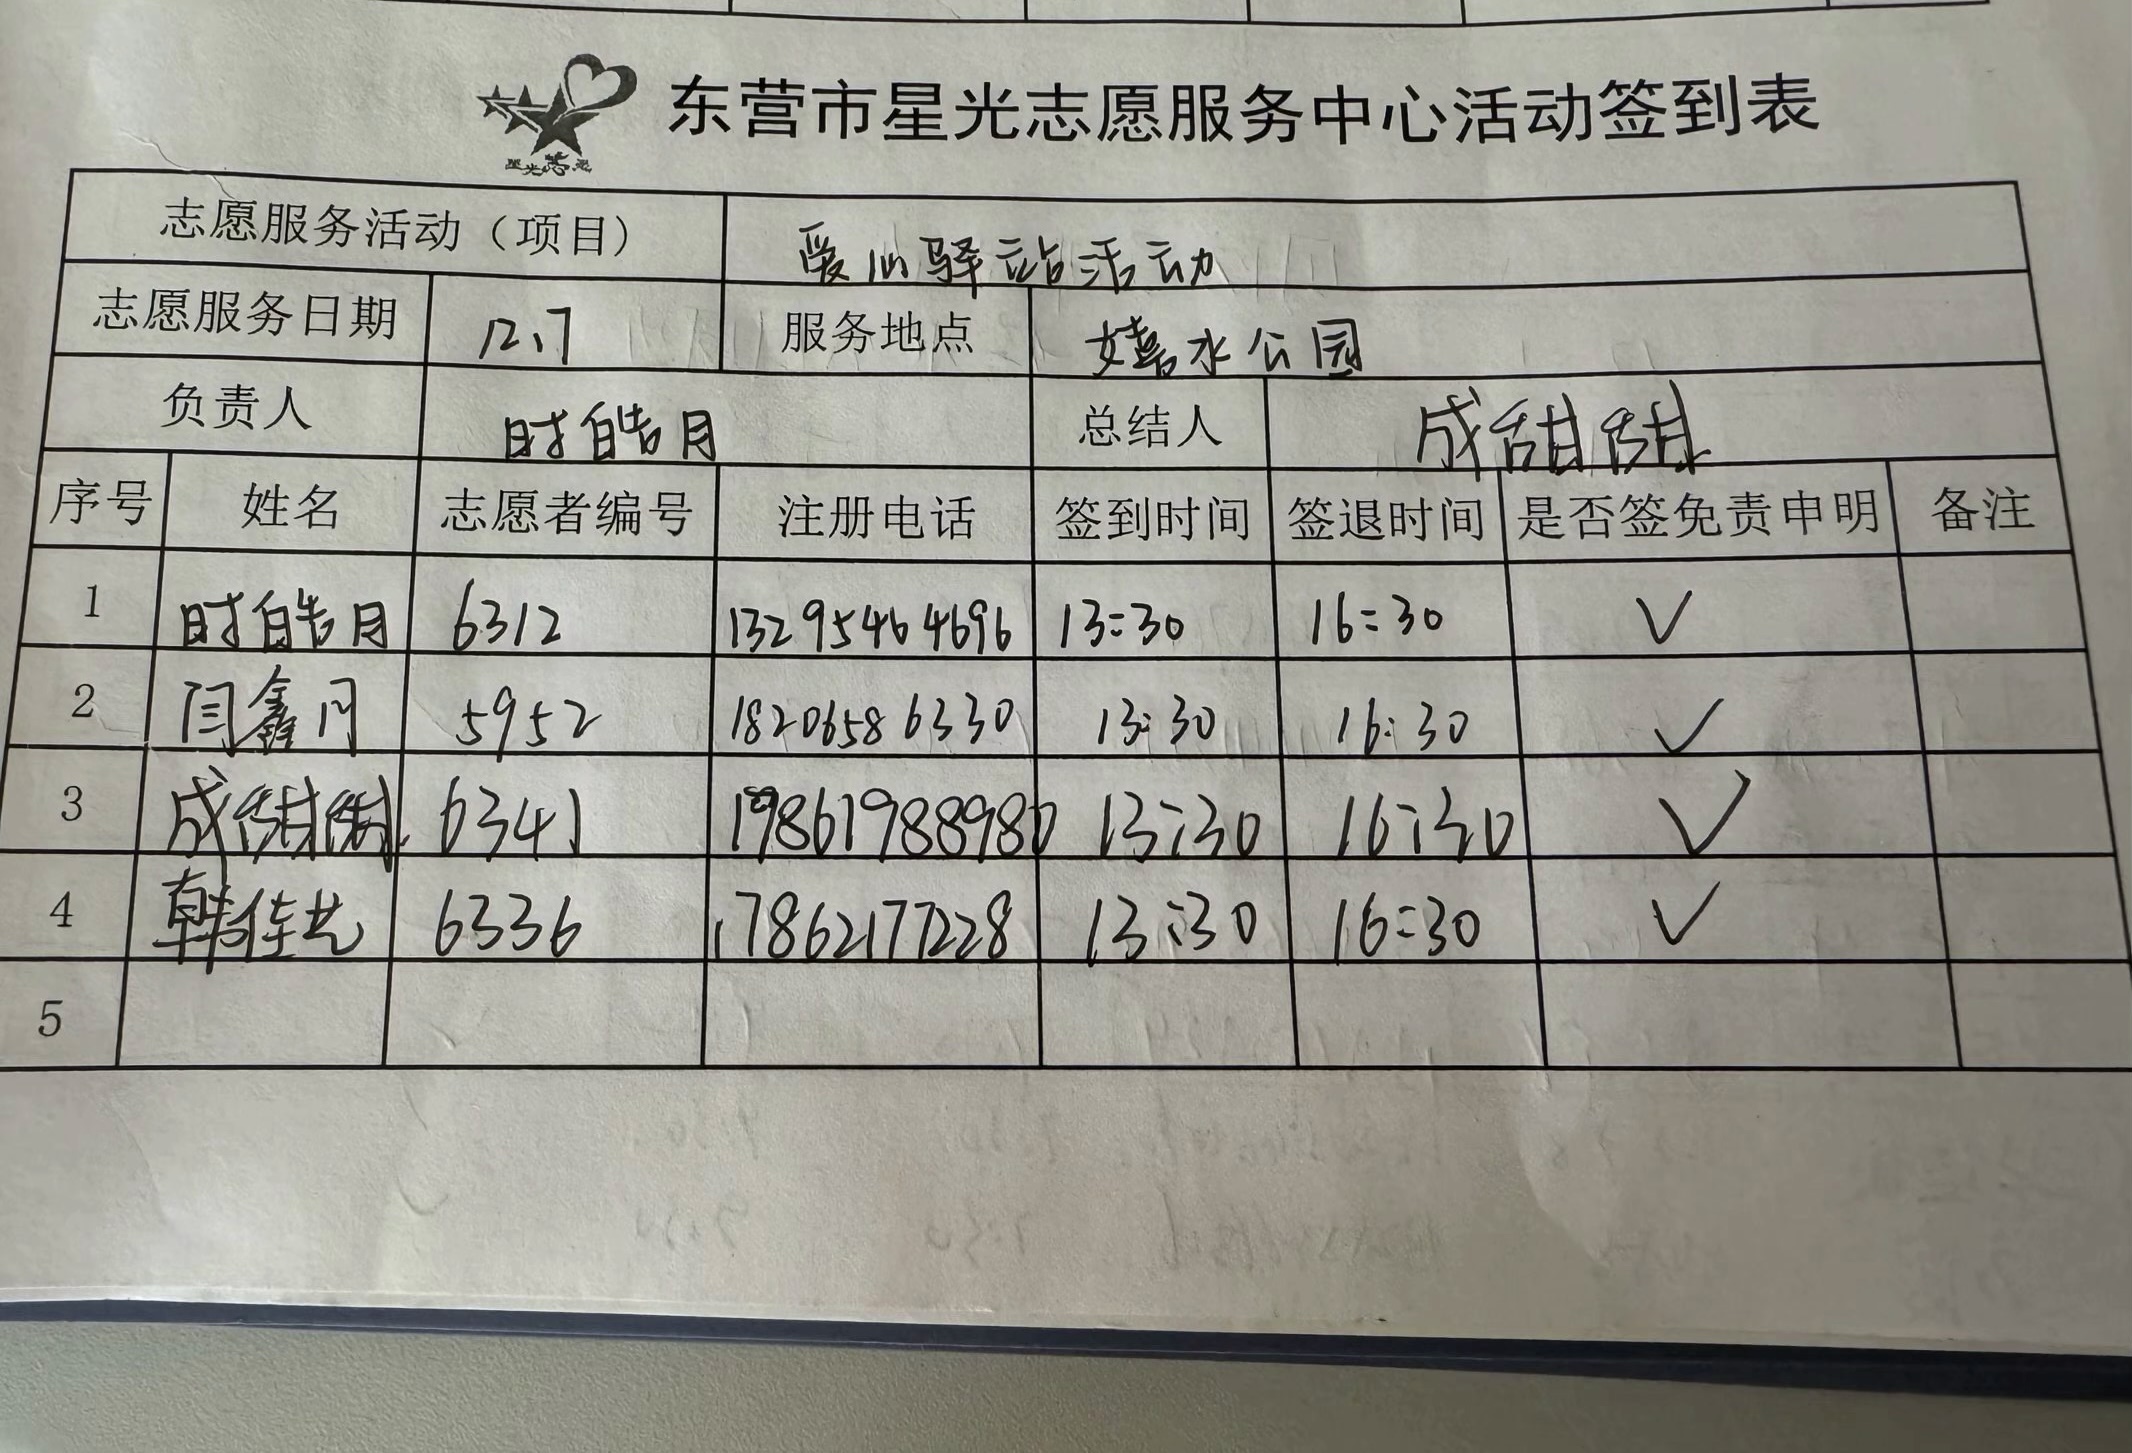 东营市星光志愿服务中心活动签到表
志愿服务活动（项目） 爱心驿站活动
志愿服务日期 12.7 服务地点 嬉水公园
负责人 时皓月 总结人 成甜甜
序号 姓名 志愿者编号 注册电话 签到时间 签退时间 是否签免责申明 备注
1 时皓月 6312 13295464696 13:30 16:30 ✓
2 闫鑫月 5952 18206586330 13:30 16:30 ✓
3 成甜甜 6341 19861988980 13:30 16:30 ✓
4 韩佳艺 6336 17862177228 13:30 16:30 ✓
5